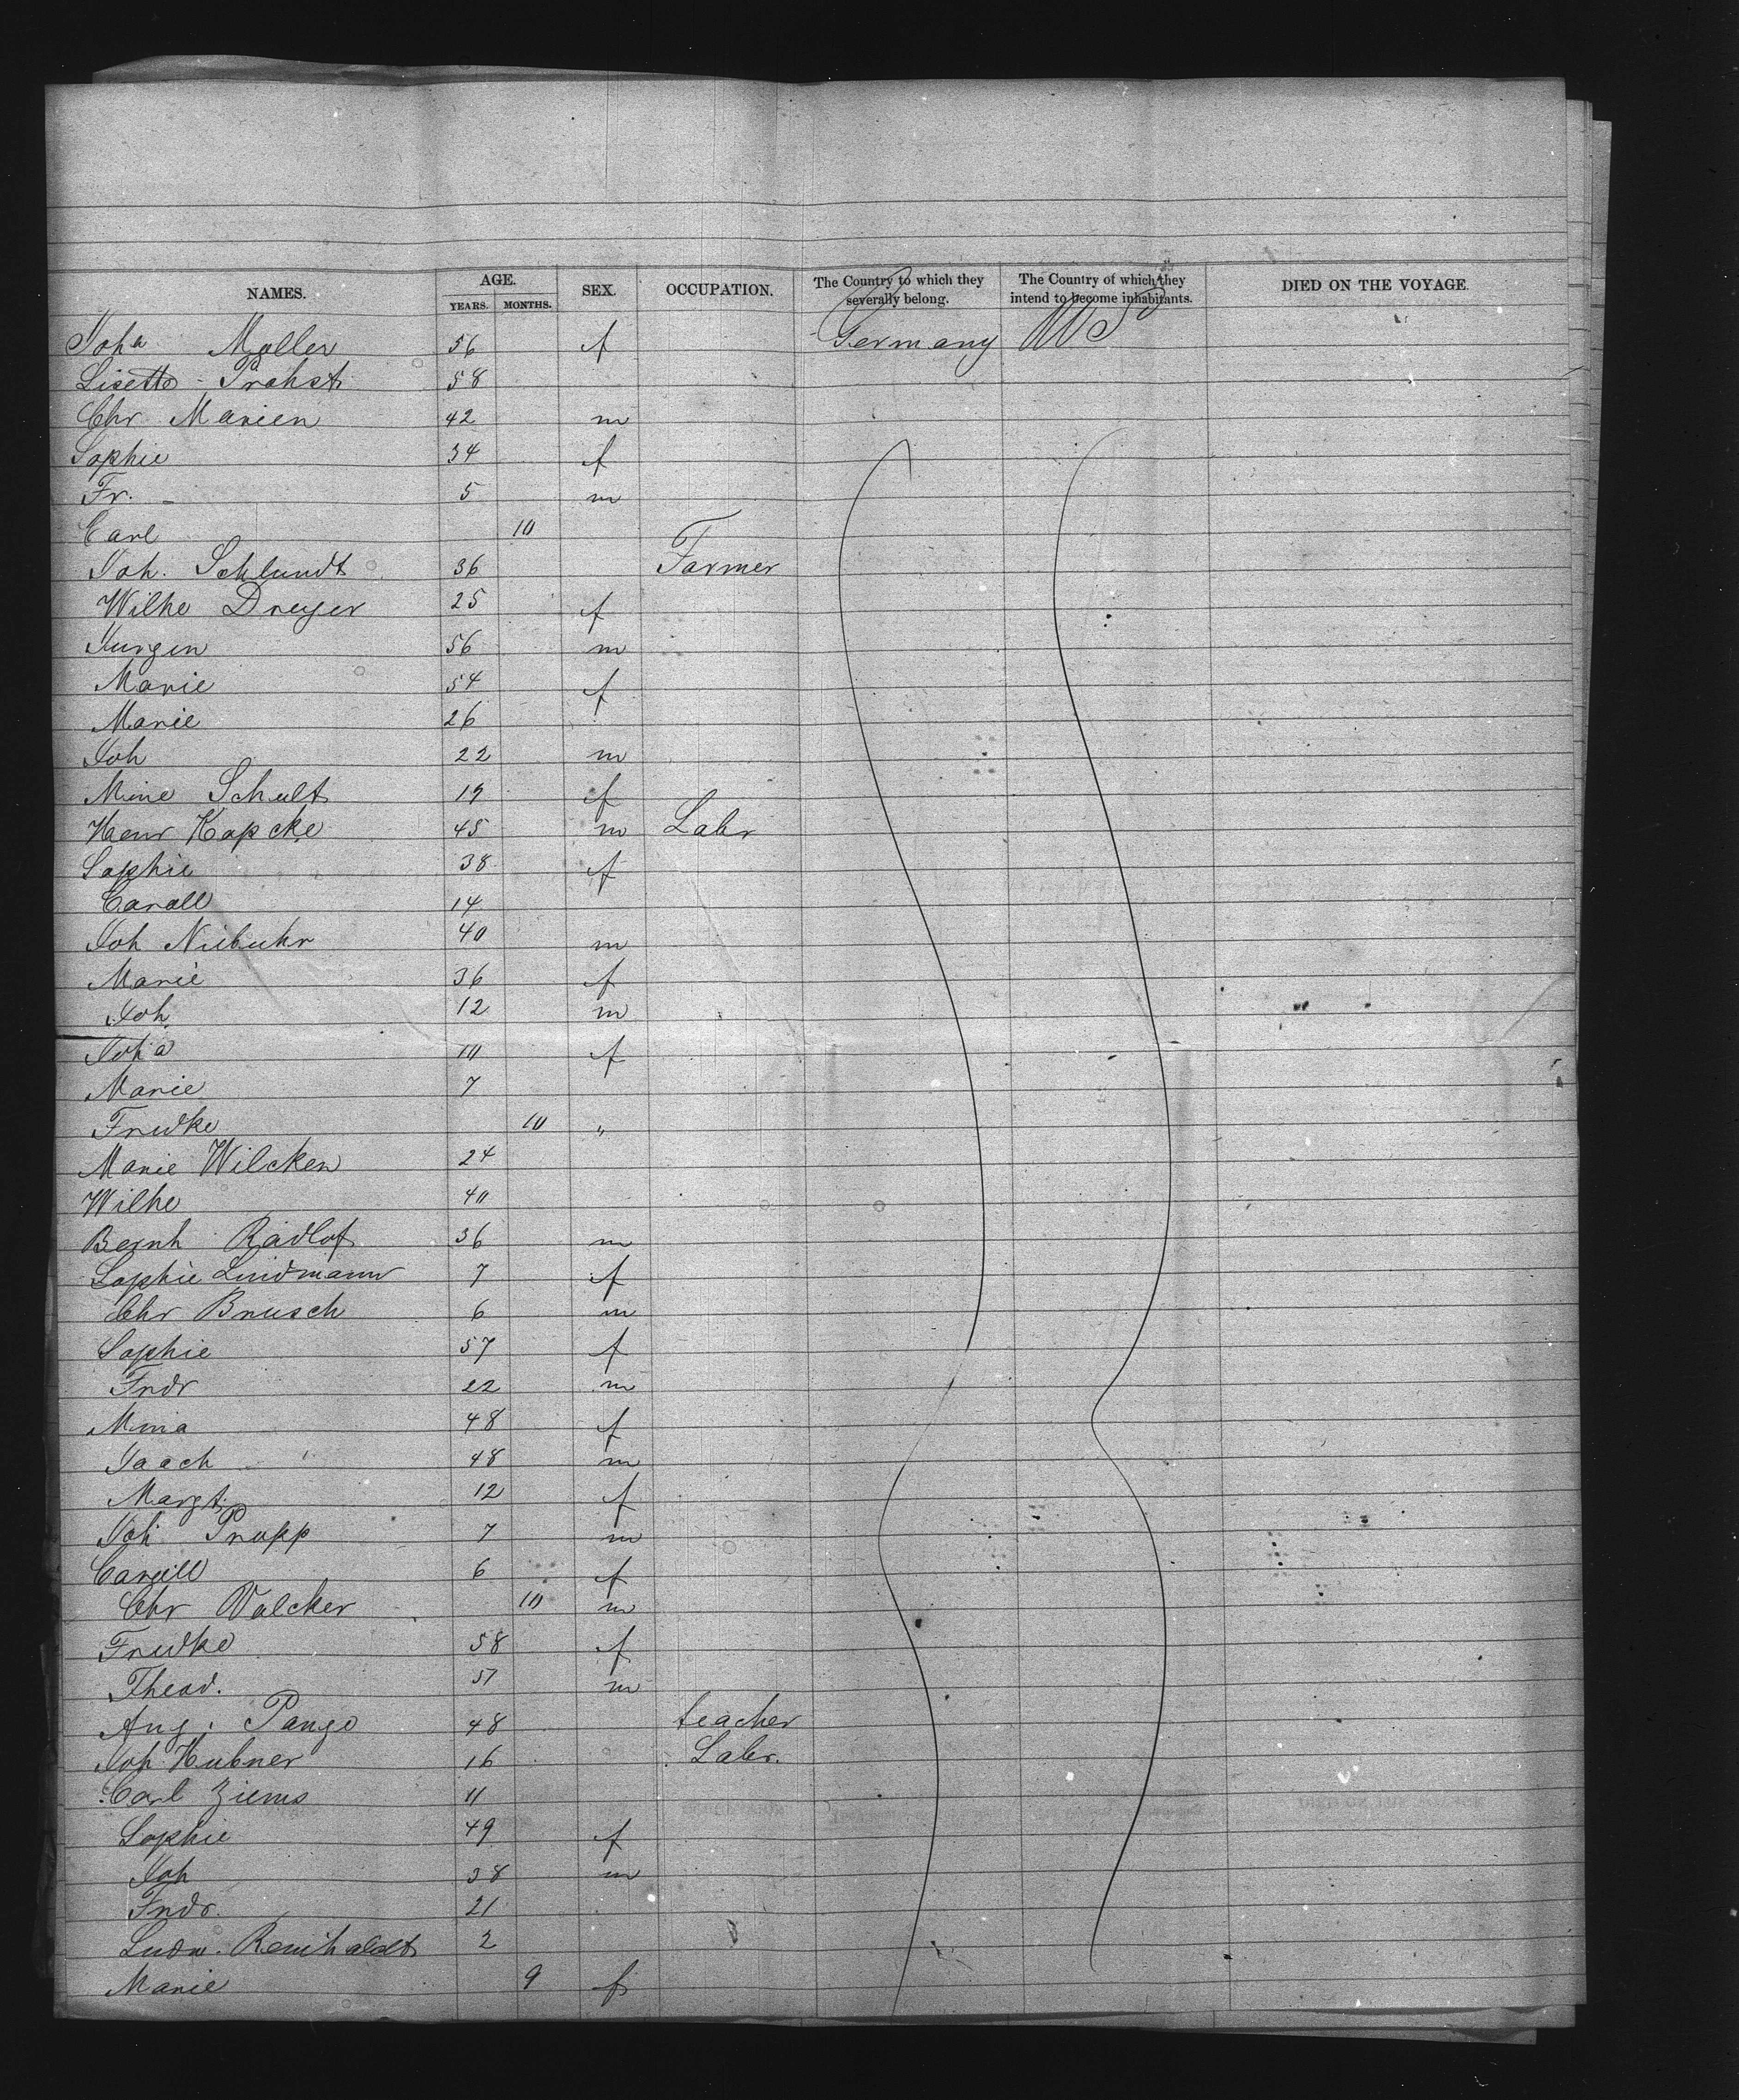 NAMES. AGE. YEARS. MONTHS. SEX. OCCUPATION. The Country to which they severally belong. The Country of which they intend to become inhabitants. DIED ON THE VOYAGE.
Joha Moller 56 f Germany U S
Lisette Prohst 58
Chr Marien 42 m
Sophie 34 f
Fr. 5 m
Carl 10
Joh. Schlundt 36 Farmer
Wilhe Dreyer 25 f
Jurgen 56 m
Marie 54 f
Marie 26
Joh 22 m
Mine Schult 19 f
Henr Kopcke 45 m Labr
Sophie 38 f
Caroll 14
Joh Niebuhr 40 m
Marie 36 f
Joh 12 m
Joha 10 f
Marie 7
Fredke 10 "
Marie Wilcken 24
Wilhe 40
Bernh Radlof 36 m
Sophie Lindmann 7 f
Chr Brusch 6 m
Sophie 57 f
Fredr 22 m
Mina 48 f
Joach 48 m
Margt. 12 f
Joh Prupp 7 m
6 f
Chr Volcker 10 m
Fredke 58 f
Theod. 57 m
Aug. Pango 48 teacher
Joh Hubner 16 Labr.
Carl Ziems 11
Sophie 49 f
Joh 38 m
Fredr. 21
Ludw. Reinholdt 2
Marie 9 f